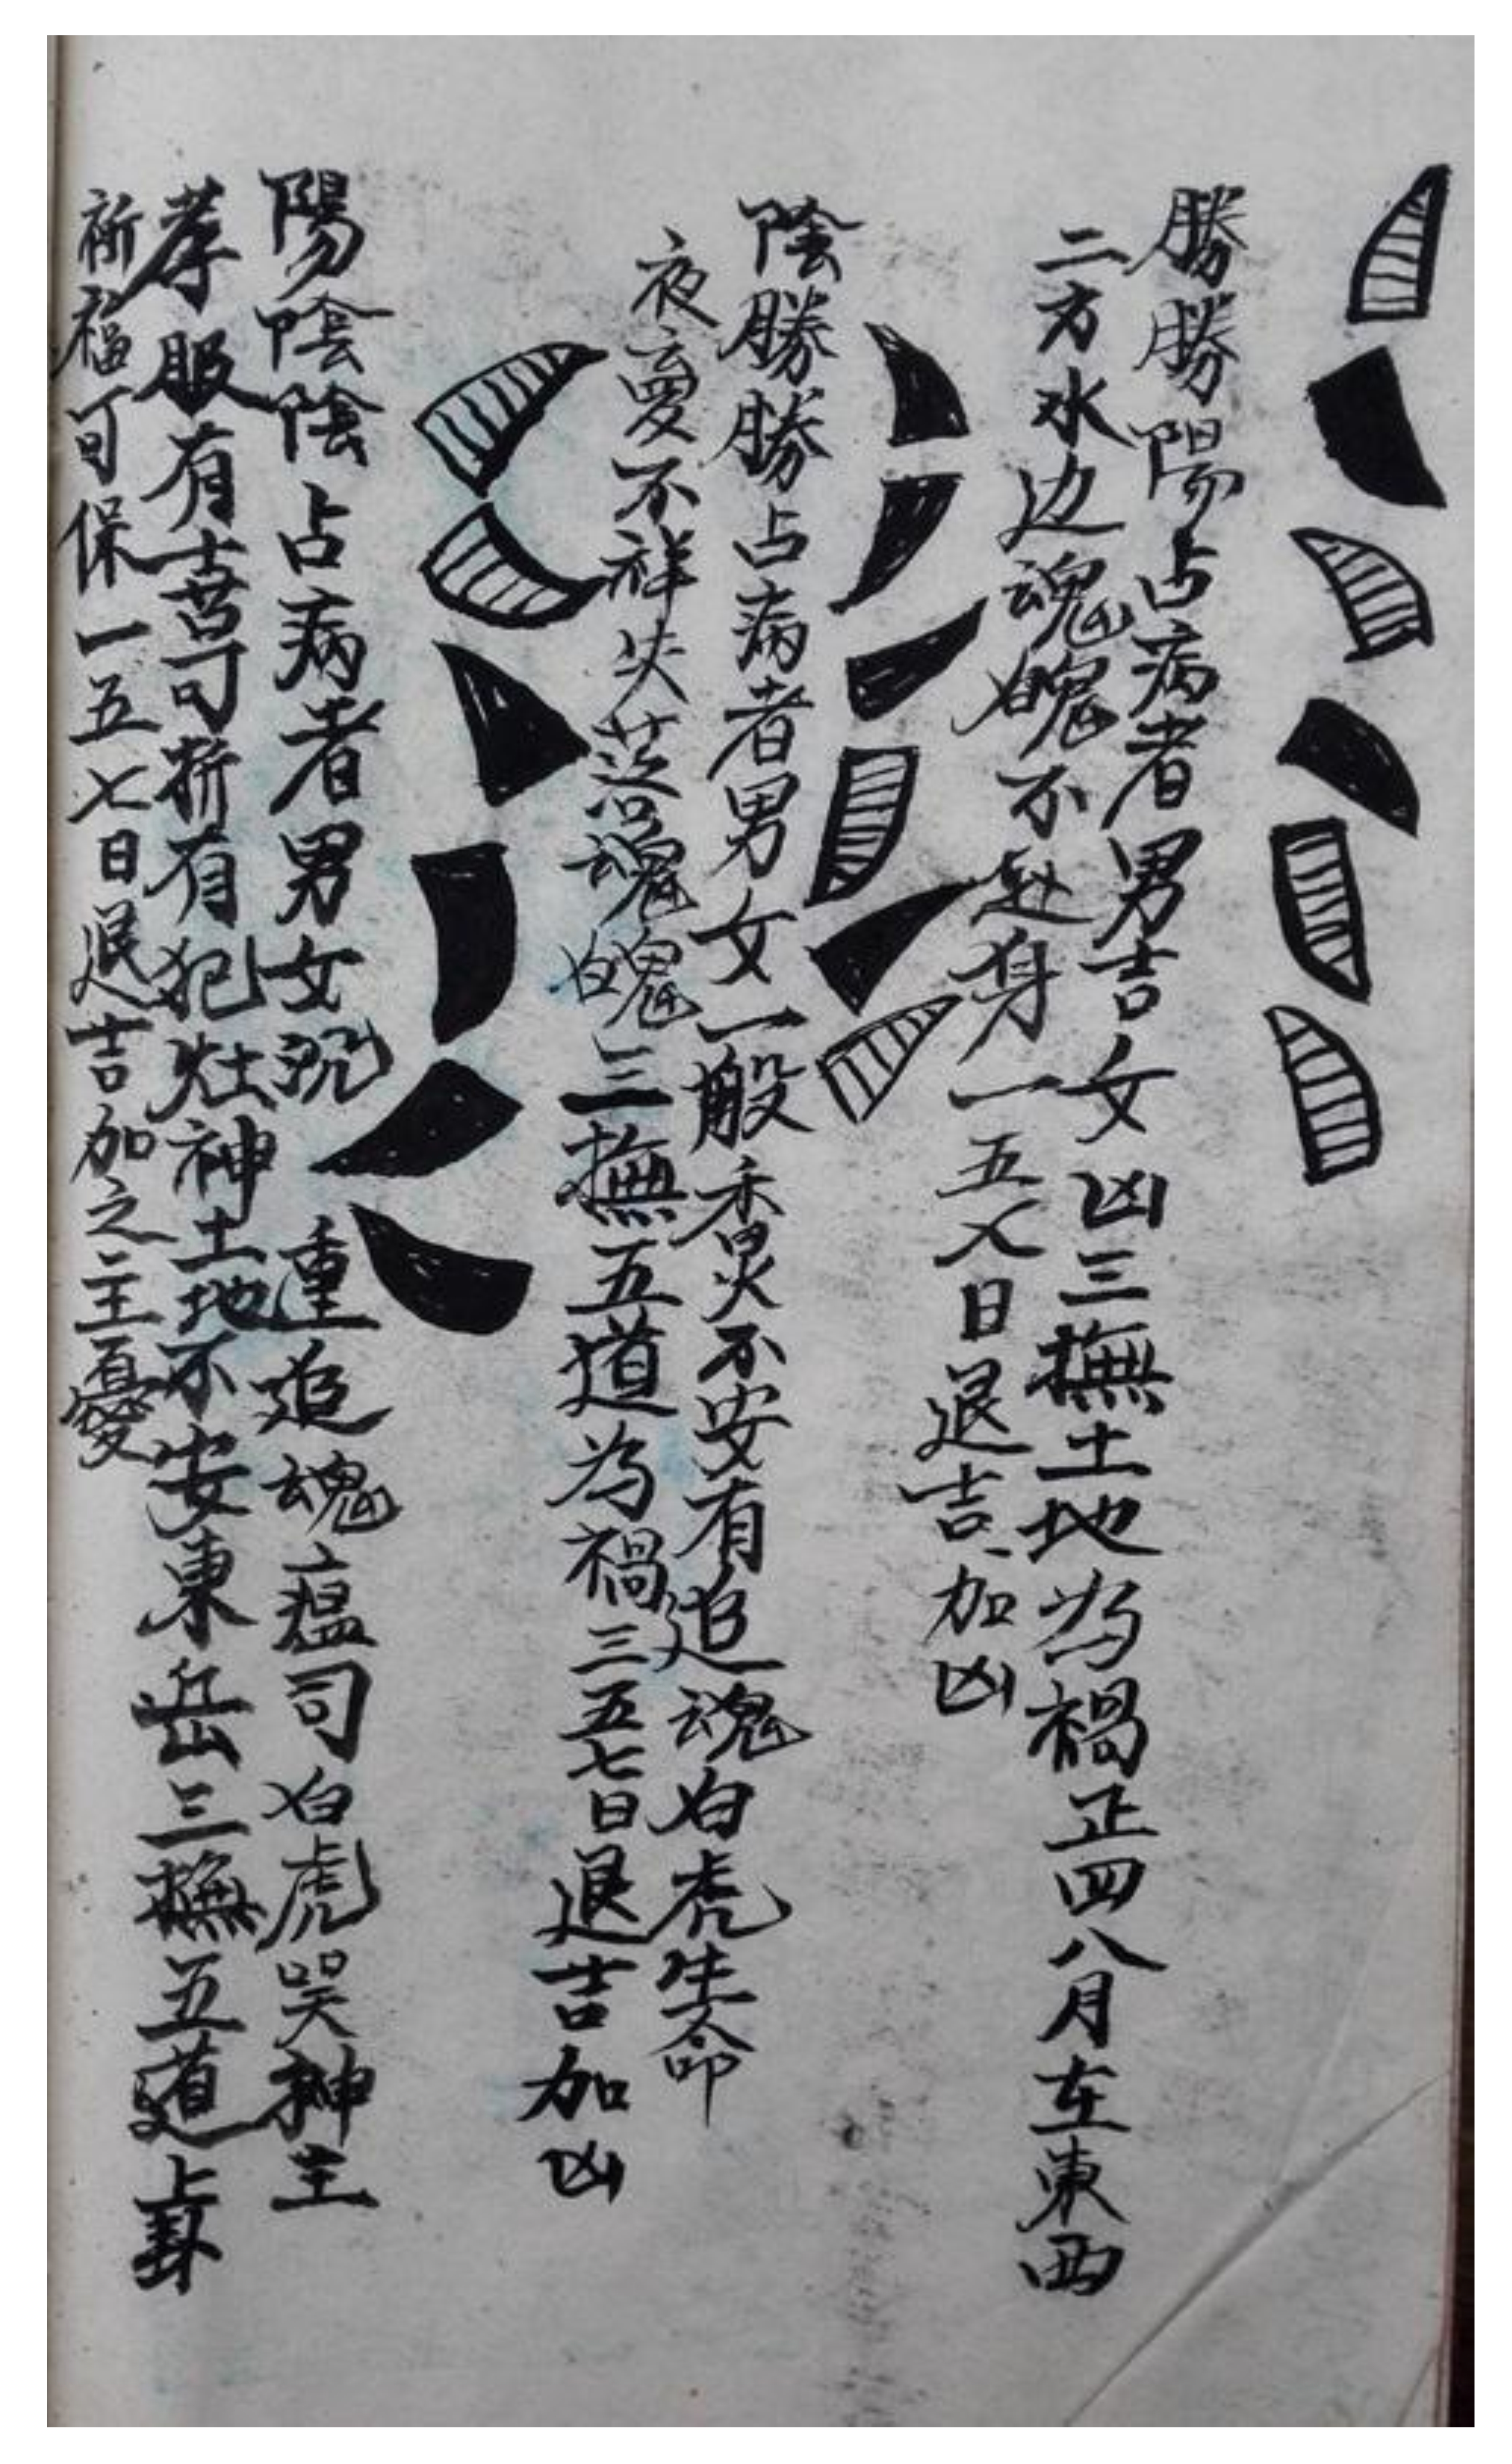 勝勝陽占病者男吉女凶三撫土地為禍正四八月在東西
二方水边魂魄不赴身一五七日退吉加凶
陰勝勝占病者男女一般香火不安有追魂白虎生命
夜夢不祥失落魂魄三撫五道為禍三五七日退吉加凶
陽陰陰占病者男女沉重追魂瘟司白虎哭神主
孝服有喜可折有犯灶神土地不安東岳三撫五道上卦
祈福可保一五七日退吉加之主憂